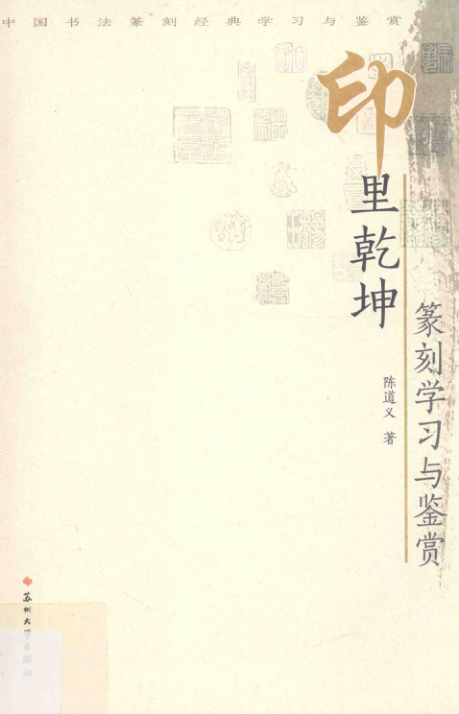 中国书法篆刻经典学习与鉴赏
印里乾坤
篆刻学习与鉴赏
陈道义 著
苏州大